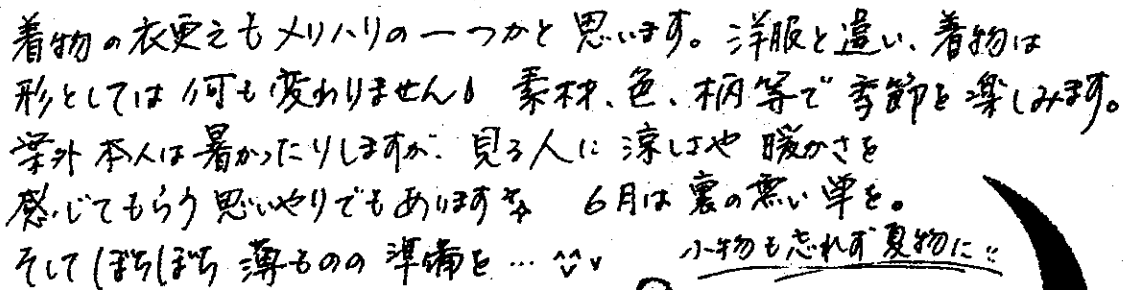 着物の衣更えもメリハリの一つかと思います。洋服と違い、着物は
形としては何も変わりません。素材、色、柄等で季節を楽しみます。
案外本人は暑かったりしますが、見る人に涼しさや暖かさを
感じてもらう思いやりでもあります 6月は裏の無い単を。
そしてぼちぼち薄ものの準備を…
小物も忘れず夏物に!!